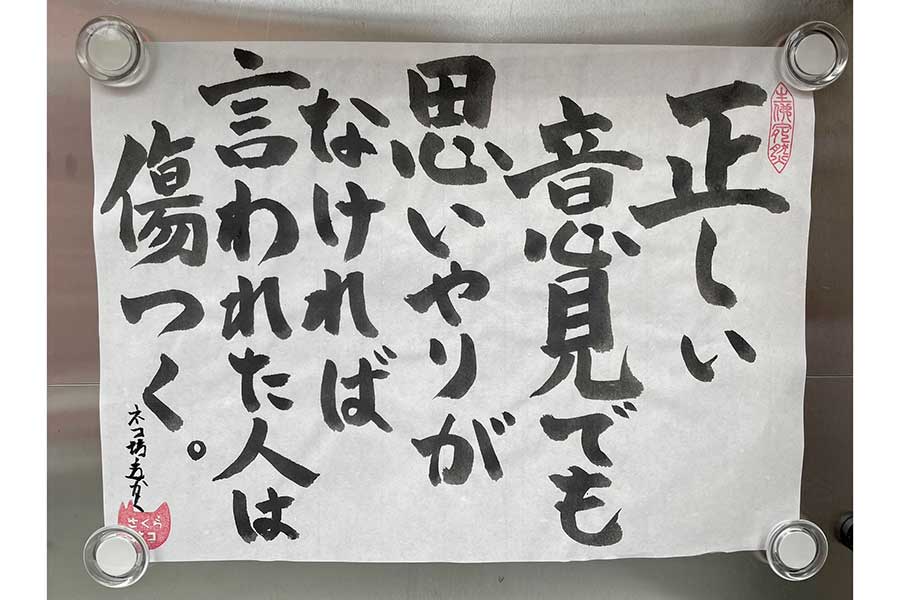 正しい
意見でも
思いやりが
なければ
言われた人は
傷つく。
ネコ坊主かく
さくら
ネコ